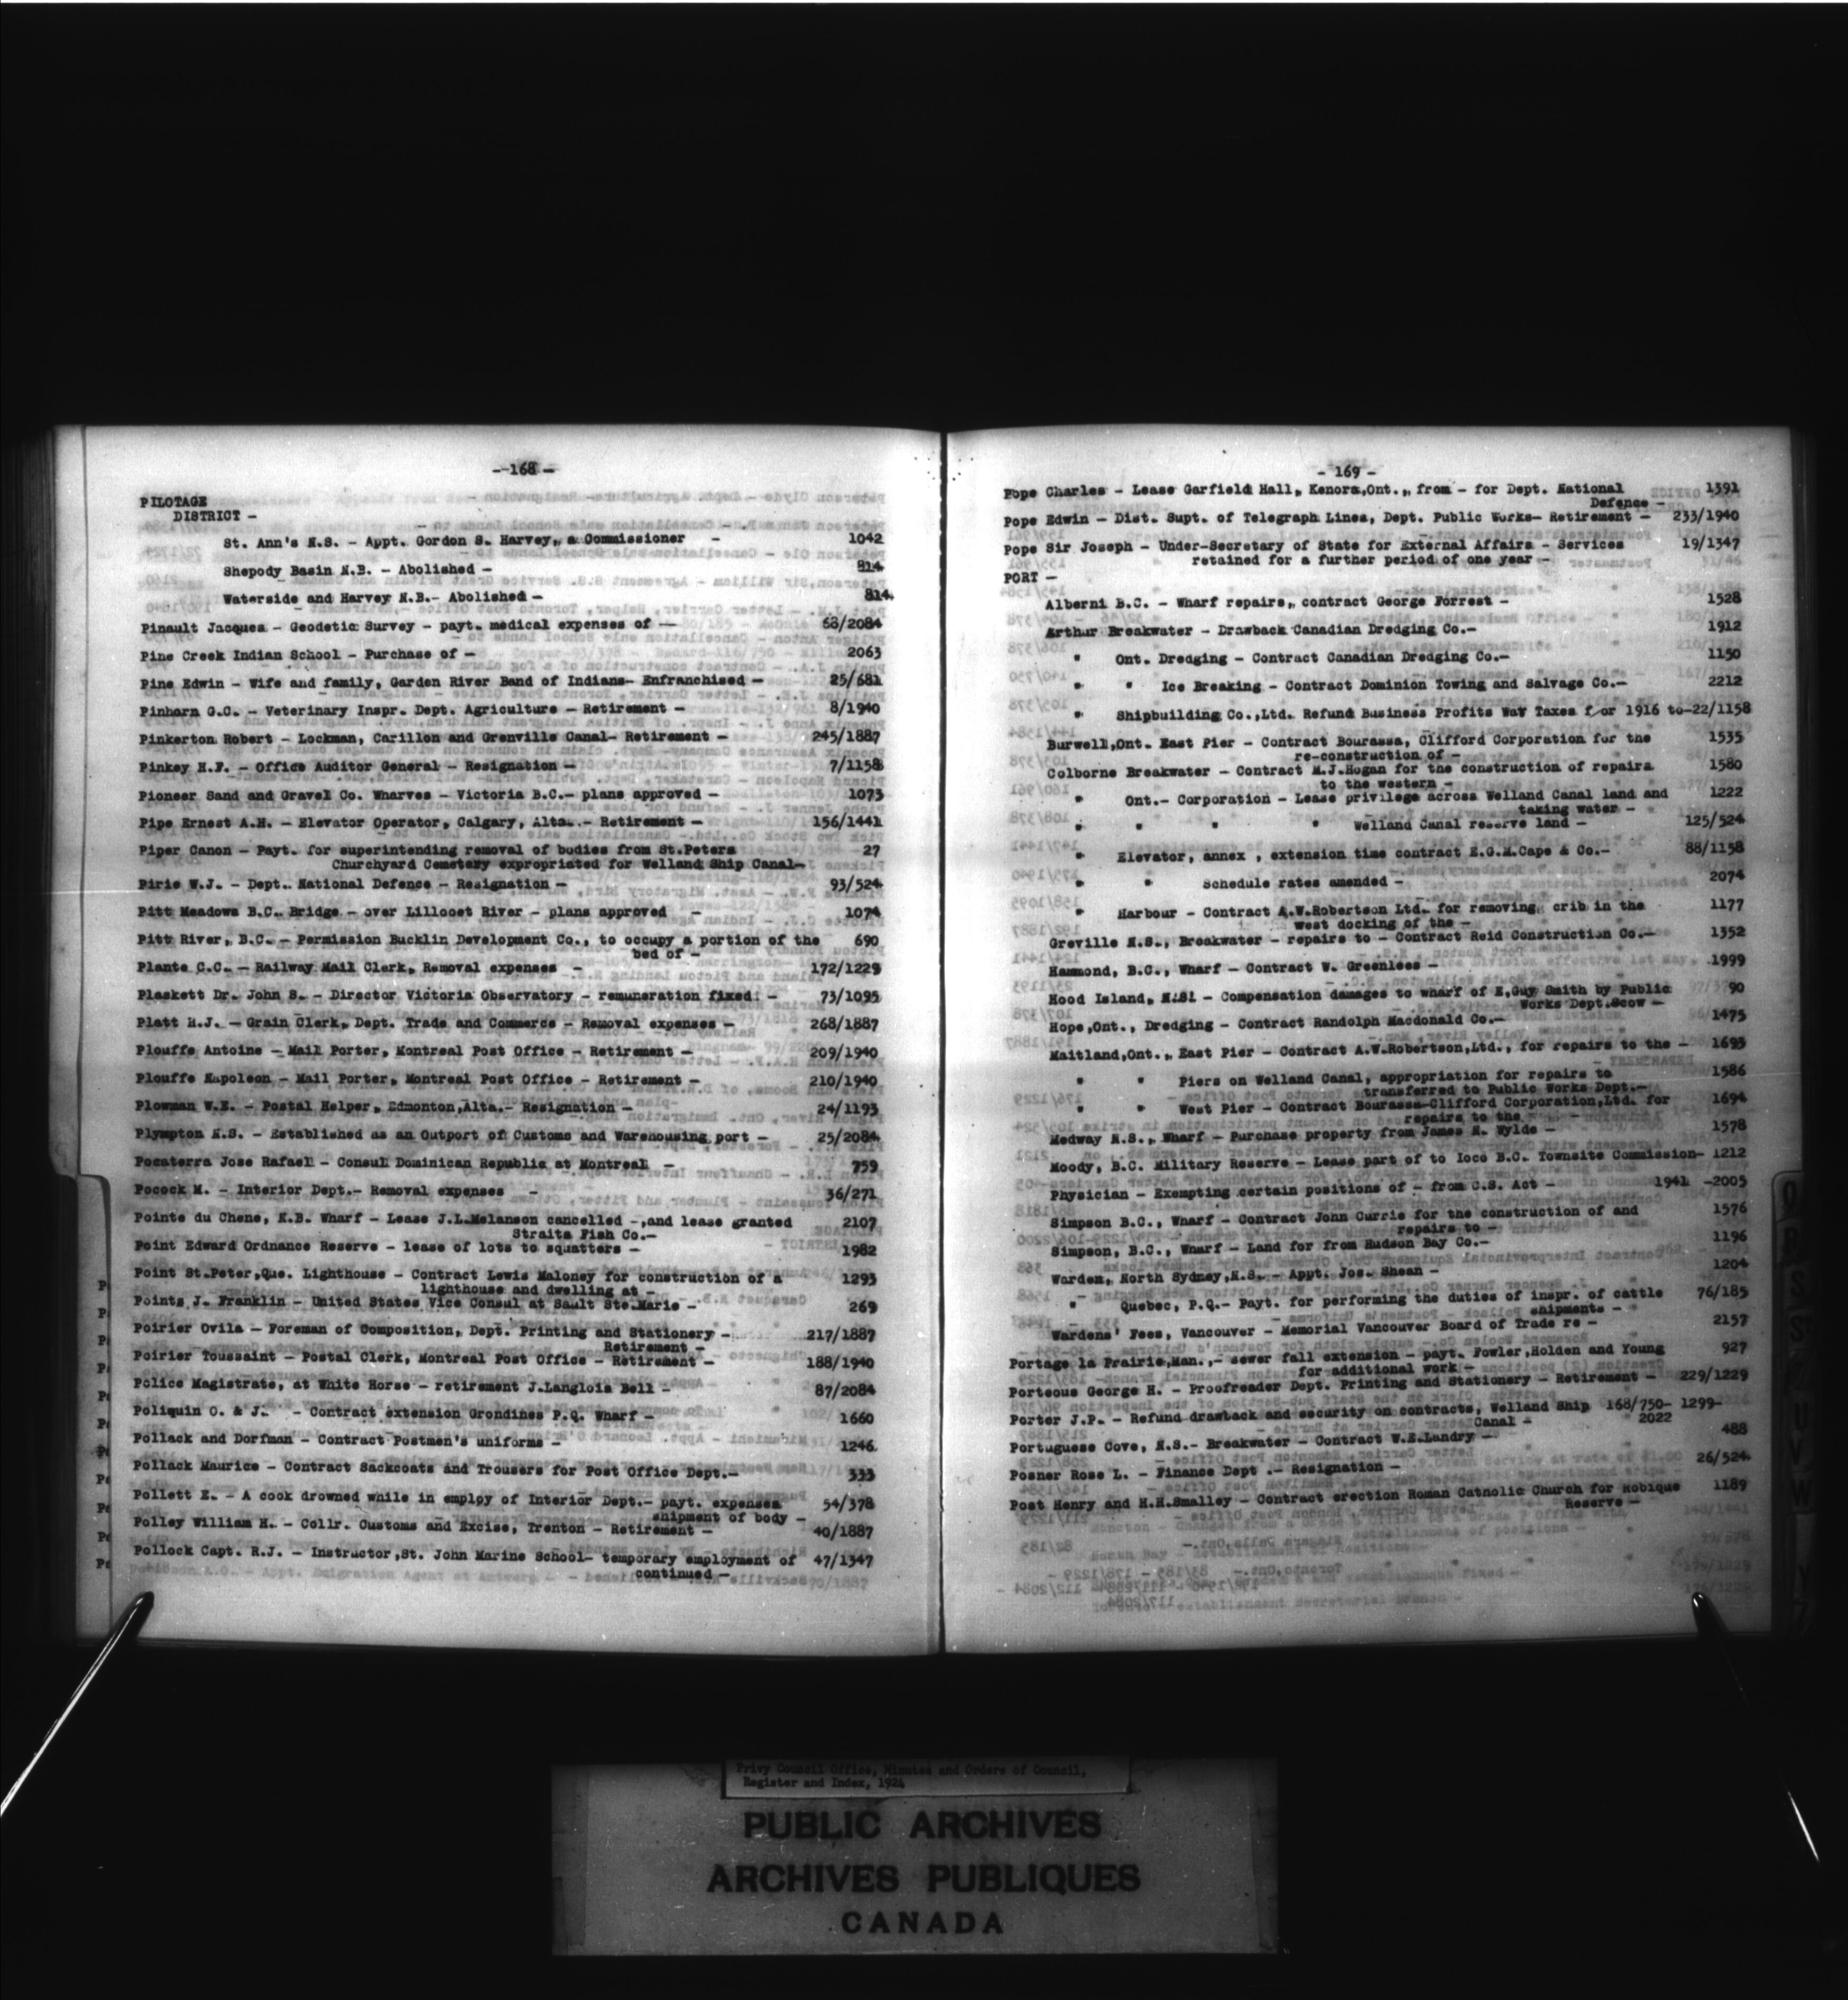 --168 --
PILOTAGE
DISTRICT -
St. Ann's N.S. - Appt. Gordon S. Harvey, a Commissioner - 1042
Shepody Basin N.B. - Abolished - 814
Waterside and Harvey N.B.- Abolished - 814
Pinault Jacques - Geodetic Survey - payt. medical expenses of - 68/2084
Pine Creek Indian School - Purchase of - 2063
Pine Edwin - Wife and family, Garden River Band of Indians- Enfranchised - 25/681
Pinhorn G.C. - Veterinary Inspr. Dept. Agriculture - Retirement - 8/1940
Pinkerton Robert - Lockman, Carillon and Grenville Canal- Retirement - 245/1887
Pinkey H.F. - Office Auditor General - Resignation - 7/1158
Pioneer Sand and Gravel Co. Wharves - Victoria B.C.- plans approved - 1073
Pipe Ernest A.H. - Elevator Operator, Calgary, Alta.- Retirement - 156/1441
Piper Canon - Payt. for superintending removal of bodies from St.Peters 27
Churchyard Cemetery expropriated for Welland Ship Canal-
Pirie W.J. - Dept. National Defence - Resignation - 93/524
Pitt Meadows B.C. Bridge - over Lillooet River - plans approved - 1074
Pitt River, B.C. - Permission Bucklin Development Co., to occupy a portion of the 690
bed of -
Plante C.C. - Railway Mail Clerk, Removal expenses - 172/1229
Plaskett Dr. John S. - Director Victoria Observatory - remuneration fixed - 73/1095
Platt H.J. - Grain Clerk, Dept. Trade and Commerce - Removal expenses - 268/1887
Plouffe Antoine - Mail Porter, Montreal Post Office - Retirement - 209/1940
Plouffe Napoleon - Mail Porter, Montreal Post Office - Retirement - 210/1940
Plowman W.E. - Postal Helper, Edmonton,Alta.- Resignation - 24/1193
Plympton N.S. - Established as an Outport of Customs and Warehousing port - 25/2084
Pocaterra Jose Rafael - Consul Dominican Republic at Montreal - 759
Pocock M. - Interior Dept.- Removal expenses - 36/271
Pointe du Chene, N.B. Wharf - Lease J.L.Melanson cancelled -,and lease granted 2107
Straits Fish Co.-
Point Edward Ordnance Reserve - lease of lots to squatters - 1982
Point St.Peter,Que. Lighthouse - Contract Lewis Maloney for construction of a 1293
lighthouse and dwelling at -
Points J. Franklin - United States Vice Consul at Sault Ste.Marie - 269
Poirier Ovila - Foreman of Composition, Dept. Printing and Stationery - 217/1887
Retirement -
Poirier Toussaint - Postal Clerk, Montreal Post Office - Retirement - 188/1940
Police Magistrate, at White Horse - retirement J.Langlois Bell - 87/2084
Poliquin O. & J. - Contract extension Grondines P.Q. Wharf - 1660
Pollack and Dorfman - Contract Postmen's uniforms - 1246
Pollack Maurice - Contract Sackcoats and Trousers for Post Office Dept.- 333
Pollett E. - A cook drowned while in employ of Interior Dept.- payt. expenses 54/378
shipment of body -
Polley William H. - Collr. Customs and Excise, Trenton - Retirement - 40/1887
Pollock Capt. R.J. - Instructor,St. John Marine School- temporary employment of 47/1347
continued -
- 169 -
Pope Charles - Lease Garfield Hall, Kenora,Ont., from - for Dept. National 1391
Defence -
Pope Edwin - Dist. Supt. of Telegraph Lines, Dept. Public Works- Retirement - 233/1940
Pope Sir Joseph - Under-Secretary of State for External Affairs - Services 19/1347
retained for a further period of one year -
PORT -
Alberni B.C. - Wharf repairs, contract George Forrest - 1528
Arthur Breakwater - Drawback Canadian Dredging Co.- 1912
" Ont. Dredging - Contract Canadian Dredging Co.- 1150
" " Ice Breaking - Contract Dominion Towing and Salvage Co.- 2212
" Shipbuilding Co.,Ltd. Refund Business Profits War Taxes for 1916 to-22/1158
Burwell,Ont. East Pier - Contract Bourassa, Clifford Corporation for the 1535
re-construction of -
Colborne Breakwater - Contract M.J.Hogan for the construction of repairs 1580
to the western -
" Ont.- Corporation - Lease privilege across Welland Canal land and 1222
taking water -
" " " " Welland Canal reserve land - 125/524
" Elevator, annex , extension time contract E.G.M.Cape & Co.- 88/1158
" " Schedule rates amended - 2074
" Harbour - Contract A.W.Robertson Ltd. for removing crib in the 1177
west docking of the -
Greville N.S., Breakwater - repairs to - Contract Reid Construction Co.- 1352
Hammond, B.C., Wharf - Contract W. Greenlees - 1999
Hood Island, N.S. - Compensation damages to wharf of N.Guy Smith by Public 90
Works Dept.Scow -
Hope,Ont., Dredging - Contract Randolph Macdonald Co.- 1475
Maitland,Ont., East Pier - Contract A.W.Robertson,Ltd., for repairs to the - 1693
" " Piers on Welland Canal, appropriation for repairs to 1586
transferred to Public Works Dept.-
" " West Pier - Contract Bourassa-Clifford Corporation,Ltd. for 1694
repairs to the -
Medway N.S., Wharf - Purchase property from James H. Wylde - 1578
Moody, B.C. Military Reserve - Lease part of to Ioco B.C. Townsite Commission- 1212
Physician - Exempting certain positions of - from C.S. Act - 1941 -2005
Simpson B.C., Wharf - Contract John Currie for the construction of and 1576
repairs to -
Simpson, B.C., Wharf - Land for from Hudson Bay Co.- 1196
Warden, North Sydney,N.S.- Appt. Jos. Shean - 1204
" Quebec, P.Q.- Payt. for performing the duties of inspr. of cattle 76/185
shipments -
Wardens' Fees, Vancouver - Memorial Vancouver Board of Trade re - 2157
Portage la Prairie,Man.,- sewer fall extension - payt. Fowler,Holden and Young 927
for additional work -
Porteous George H. - Proofreader Dept. Printing and Stationery - Retirement - 229/1229
Porter J.P. - Refund drawback and security on contracts, Welland Ship 168/750- 1299-
Canal - 2022
Portuguese Cove, N.S.- Breakwater - Contract W.E.Landry - 488
Posner Rose L. - Finance Dept .- Resignation - 26/524
Post Henry and H.H.Smalley - Contract erection Roman Catholic Church for Mobique 1189
Reserve -
Privy Council Office, Minutes and Orders of Council,
Register and Index, 1924
PUBLIC ARCHIVES
ARCHIVES PUBLIQUES
CANADA